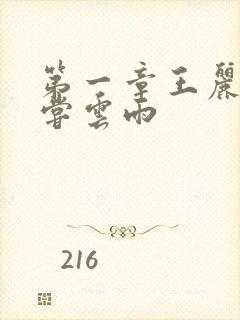 第一章王麗
嘗雲雨
216